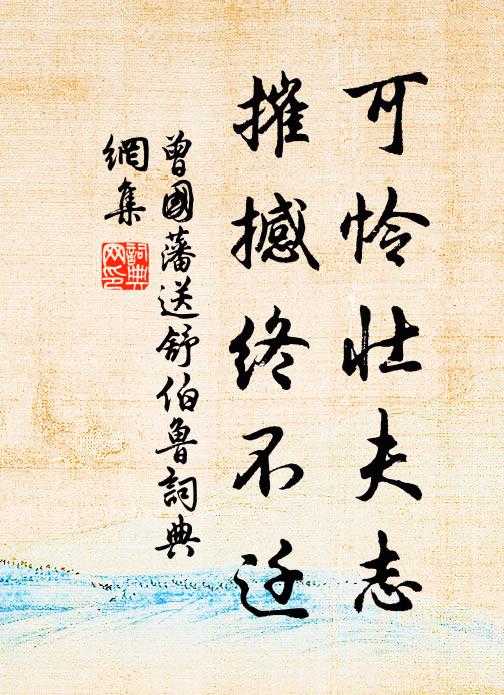 可怜壮夫志
摧撼终不迁
曾國藩送舒伯魯詞典
網集
詞典
网印